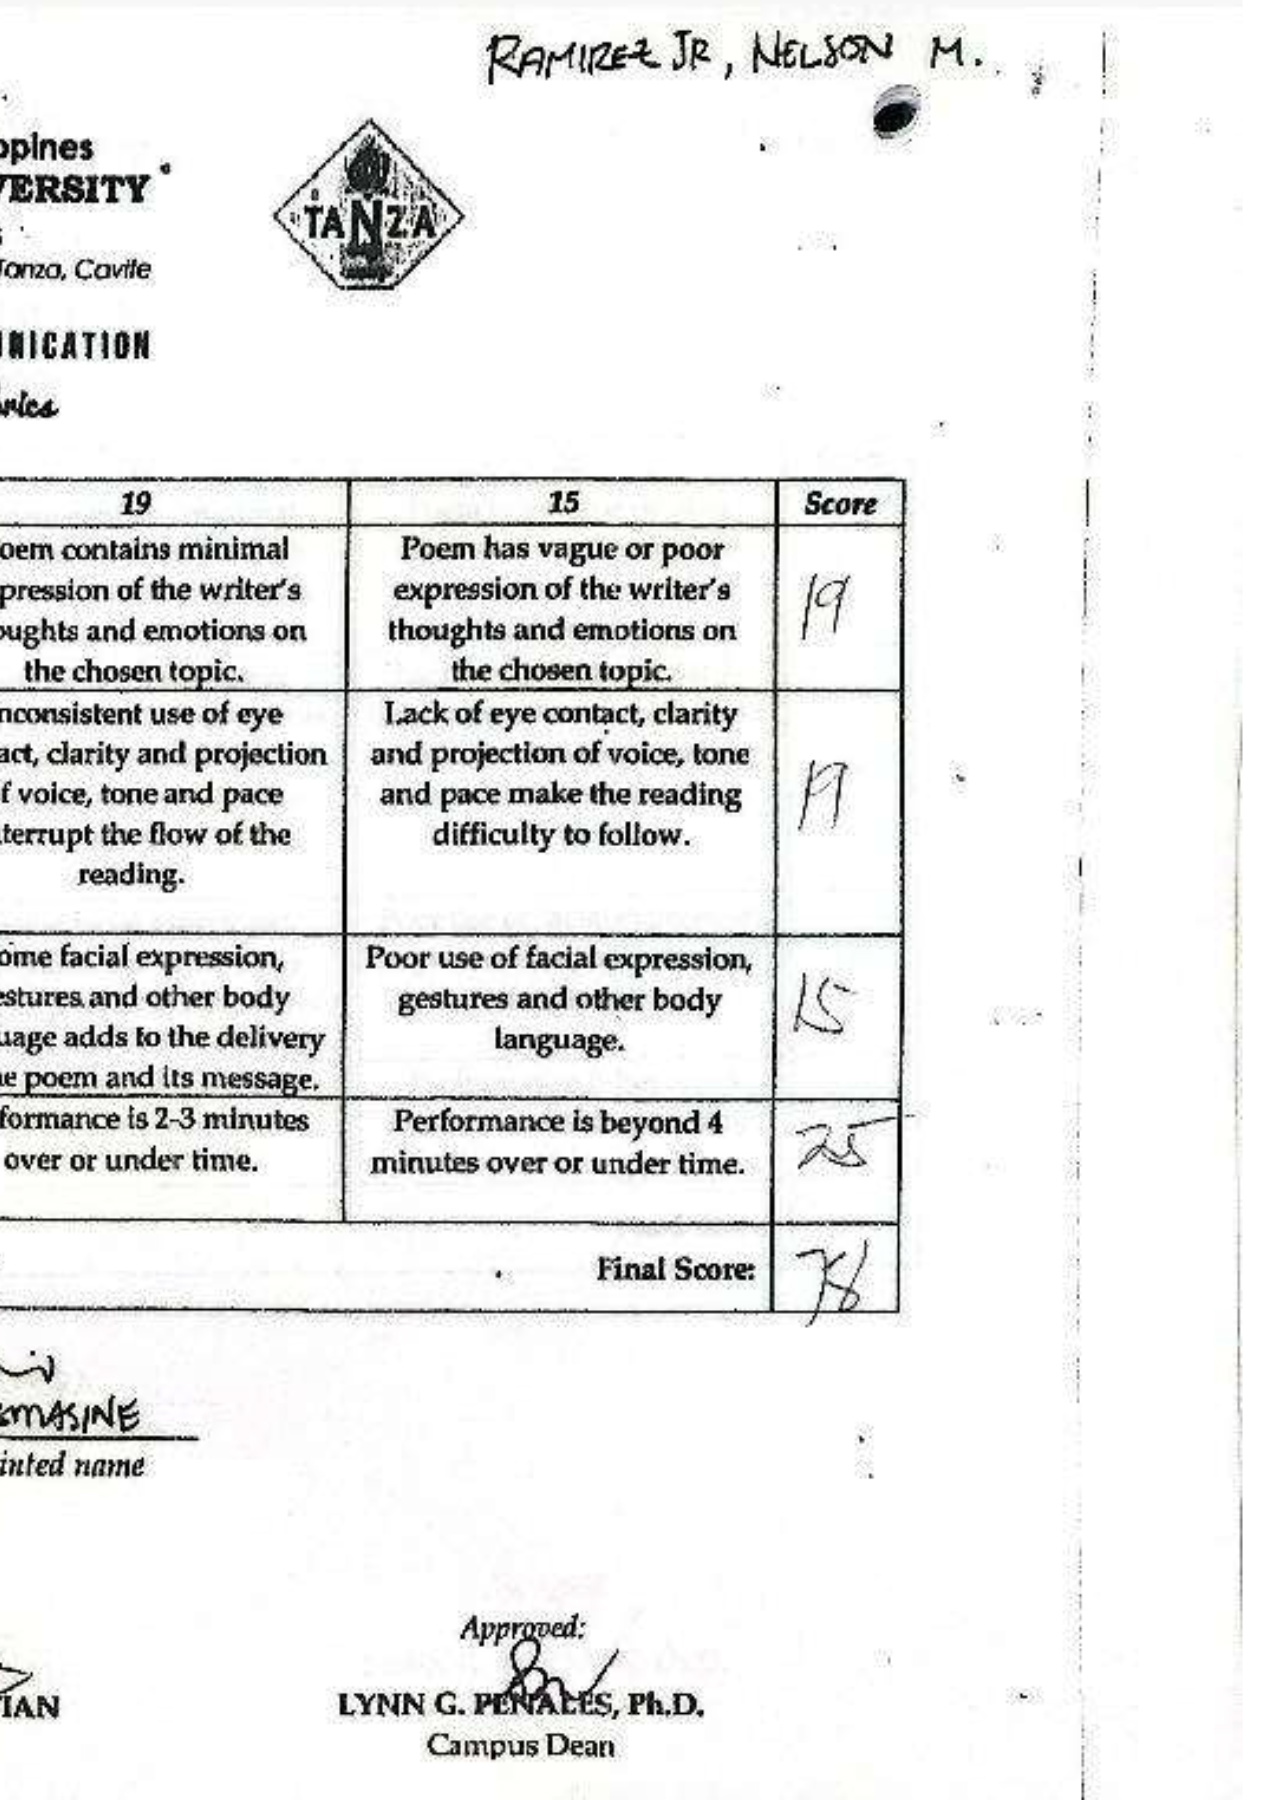 RAMIREZ JR, NELSON M.
ppines
VERSITY
Tanza, Cavite
TANZA
UNICATION
brics
19 15 Score
oem contains minimal
pression of the writer's
oughts and emotions on
the chosen topic.
Poem has vague or poor
expression of the writer's
thoughts and emotions on
the chosen topic.
19
nconsistent use of eye
act, clarity and projection
f voice, tone and pace
terrupt the flow of the
reading.
Lack of eye contact, clarity
and projection of voice, tone
and pace make the reading
difficulty to follow.
19
ome facial expression,
estures and other body
uage adds to the delivery
e poem and its message.
Poor use of facial expression,
gestures and other body
language.
15
formance is 2-3 minutes
over or under time.
Performance is beyond 4
minutes over or under time.
25
Final Score:
78
inted name
Approved:
IAN
LYNN G. PENALES, Ph.D.
Campus Dean